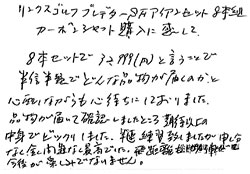 リンクスゴルフ プレデターSFアイアンセット 8本組
カーボンシャフト 購入に至して
8本セットで う3,999(円)と言うことで
半信半疑でどんな品物が届くのかと
心配しながらも心待ちにしておりました。
品物が届いて確認しましたところ 期待以上の
中身でビックリしました。練習致しましたが 申し分
なく全く問題なく最高でした。
今後が楽しみでなりません。